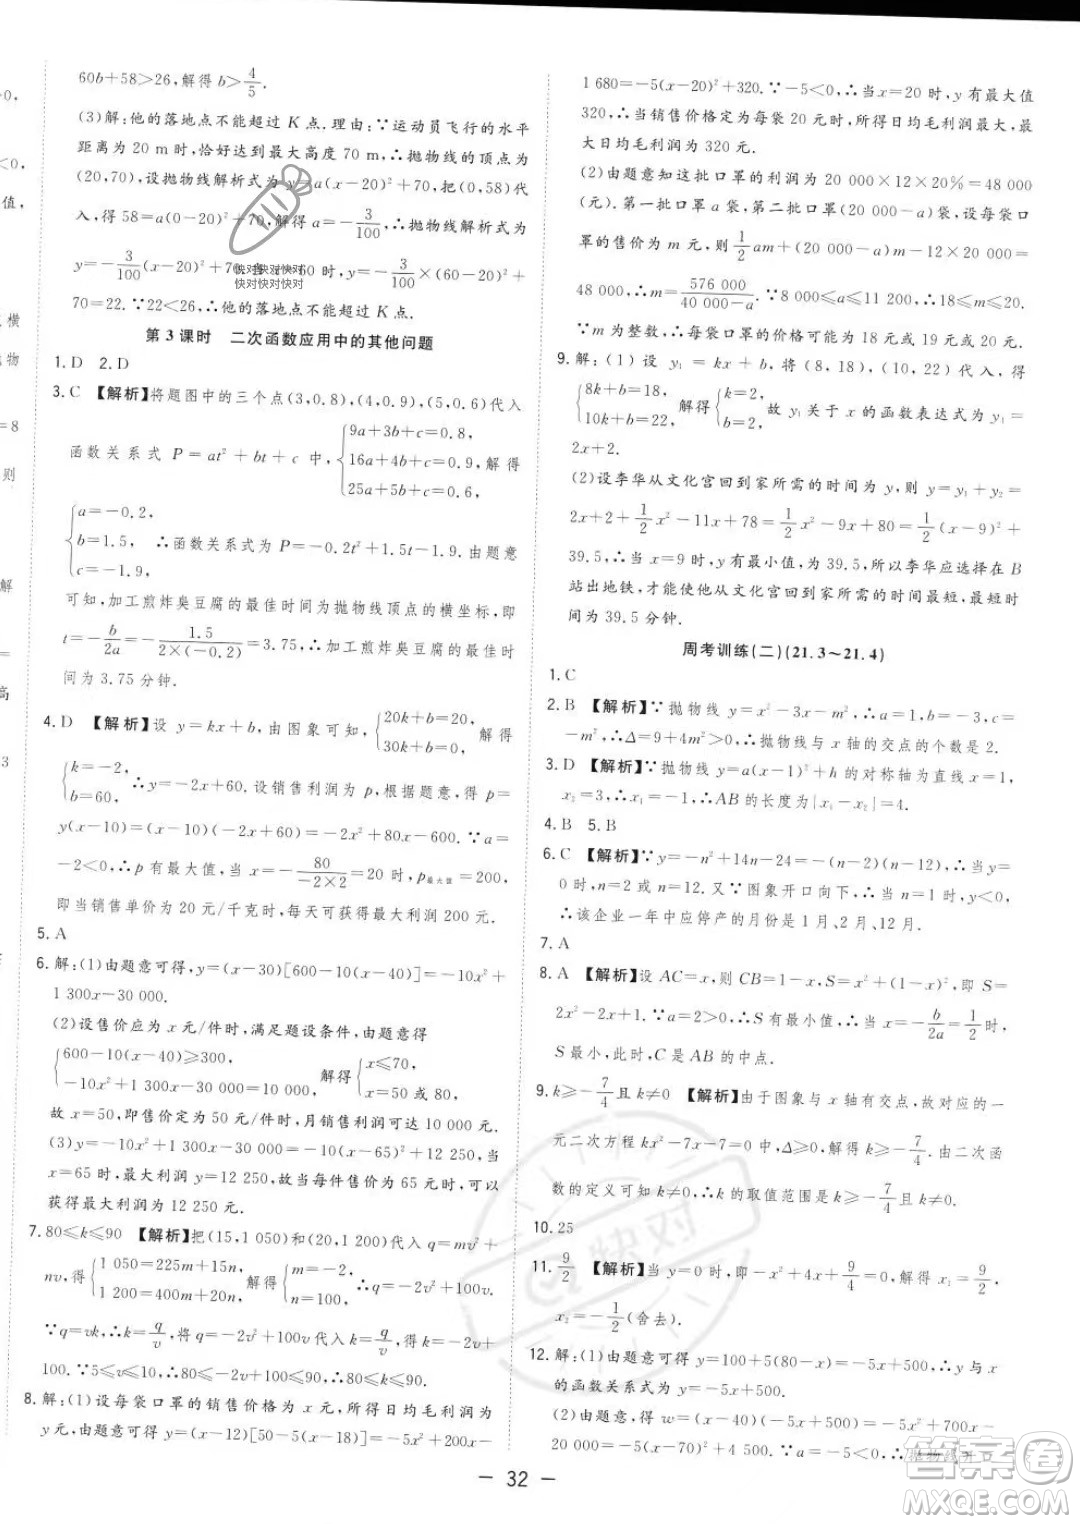 60b+58>26,解得 b>4/5.
(3)解:他的落地点不能超过 K 点.理由:∵运动员飞行的水平
距离为 20 m 时,恰好达到最大高度 70 m,∴抛物线的顶点为
(20,70),设抛物线解析式为 y=a(x-20)²+70,把(0,58)代
入,得 58=a(0-20)²+70,解得 a=-3/100,∴抛物线解析式为
y=-3/100(x-20)²+70,当 x=60 时,y=-3/100×(60-20)²+
70=22.∵22<26,∴他的落地点不能超过 K 点.
第 3 课时 二次函数应用中的其他问题
1. D 2. D
3. C 【解析】将题图中的三个点(3,0.8),(4,0.9),(5,0.6)代入
函数关系式 P=at²+bt+c 中,{9a+3b+c=0.8, 16a+4b+c=0.9, 25a+5b+c=0.6, 解得
{a=-0.2, b=1.5, c=-1.9, ∴函数关系式为 P=-0.2t²+1.5t-1.9.由题意
可知,加工煎炸臭豆腐的最佳时间为抛物线顶点的横坐标,即
t=-b/2a=-1.5/(2×(-0.2))=3.75,∴加工煎炸臭豆腐的最佳时间
为 3.75 分钟.
4. D 【解析】设 y=kx+b,由图象可知,{20k+b=20, 30k+b=0, 解得
{k=-2, b=60, ∴y=-2x+60.设销售利润为 p,根据题意,得 p=
y(x-10)=(x-10)(-2x+60)=-2x²+80x-600.∵a=
-2<0,∴p 有最大值,当 x=-80/(-2×2)=20 时,p最大值=200,
即当销售单价为 20 元/千克时,每天可获得最大利润 200 元.
5. A
6. 解:(1)由题意可得,y=(x-30)[600-10(x-40)]=-10x²+
1 300x-30 000.
(2)设售价应为 x 元/件时,满足题设条件,由题意得
{600-10(x-40)≥300, -10x²+1 300x-30 000=10 000, 解得{x≤70, x=50 或 80,
故 x=50,即售价定为 50 元/件时,月销售利润达 10 000 元.
(3)y=-10x²+1 300x-30 000=-10(x-65)²+12 250,当
x=65 时,最大利润为 12 250,故当每件售价为 65 元时,可以
获得最大利润为 12 250 元.
7. 80≤k≤90 【解析】把(15,1 050)和(20,1 200)代入 q=mv²+
nv,得{1 050=225m+15n, 1 200=400m+20n, 解得{m=-2, n=100, ∴q=-2v²+100v.
∵q=vk,∴k=q/v,将 q=-2v²+100v代入 k=q/v,得 k=-2v+
100.∵5≤v≤10,∴80≤-2v+100≤90,∴80≤k≤90.
8. 解:(1)设每袋口罩的销售价格为 x 元,所得日均毛利润为
y 元,由题意得 y=(x-12)[50-5(x-18)]=-5x²+200x-
1 680=-5(x-20)²+320.∵-5<0,∴当 x=20 时,y 有最大值
320,∴当销售价格定为每袋 20 元时,所得日均毛利润最大,最
大日均毛利润为 320 元.
(2)由题意知这批口罩的利润为 20 000×12×20%=48 000
(元).第一批口罩 a 袋,第二批口罩(20 000-a)袋,设每袋口
罩的售价为 m 元,则1/2am+(20 000-a)m-20 000×12=
48 000,∴m=576 000/(40 000-a).∵8 000≤a≤10 000,∴18≤m≤19.2.
∵m 为整数,∴每袋口罩的价格可能为 18 元或 19 元.
9. 解:(1)设 y₁=kx+b,将(8,18),(10,22)代入,得
{8k+b=18, 10k+b=22, 解得{k=2, b=2, 故 y₁ 关于 x 的函数表达式为 y₁=
2x+2.
(2)设李华从文化宫回到家所需的时间为 y,则 y=y₁+y₂=
2x+2+1/2x²-11x+78=1/2x²-9x+80=1/2(x-9)²+
39.5,∴当 x=9 时,y 有最小值,为 39.5,所以李华应选择在 B
站出地铁,才能使他从文化宫回到家所需的时间最短,最短时
间为 39.5 分钟.
周考训练(二)(21.3~21.4)
1. C
2. B 【解析】∵抛物线 y=x²-3x-m²,∴a=1,b=-3,c=
-m²,∴Δ=9+4m²>0,∴抛物线与 x 轴的交点的个数是 2.
3. D 【解析】∵抛物线 y=a(x-1)²+h 的对称轴为直线 x=1,
x₂=3,∴x₁=-1,∴AB 的长度为|x₁-x₂|=4.
4. B 5. B
6. C 【解析】∵y=-n²+14n-24=-(n-2)(n-12),∴当 y=
0 时,n=2 或 n=12.又∵图象开口向下,∴当 n=1 时,y<0,
∴该企业一年中应停产的月份是 1 月、2 月、12 月.
7. A
8. A 【解析】设 AC=x,则 CB=1-x,S=x²+(1-x)²,即 S=
2x²-2x+1.∵a=2>0,∴S 有最小值,∴当 x=-b/2a=1/2时,
S 最小,此时,C 是 AB 的中点.
9. k≥-7/4且 k≠0 【解析】由于图象与 x 轴有交点,故对应的一
元二次方程 kx²-7x-7=0 中,Δ≥0,解得 k≥-7/4.由二次函
数的定义可知 k≠0,∴k 的取值范围是 k≥-7/4且 k≠0.
10. 25
11. 9/2 【解析】当 y=0 时,即-x²+4x+9/4=0,解得 x₁=9/2,
x₂=-1/2(舍去).
12. 解:(1)由题意可得 y=100+5(80-x)=-5x+500,∴y 与 x
的函数关系式为 y=-5x+500.
(2)由题意,得 w=(x-40)(-5x+500)=-5x²+700x-
20 000=-5(x-70)²+4 500.∵a=-5<0,∴抛物线开口
— 32 —
+0,
<0,
值,
横
物
=8
则
解
高
3
快对快对快对
快对快对快对
快对
答案圈
MXQE.COM